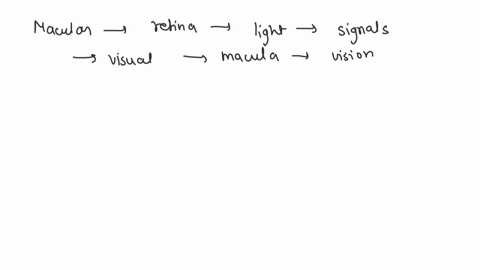 Macular → retina → light → signals
→ visual → macula → vision